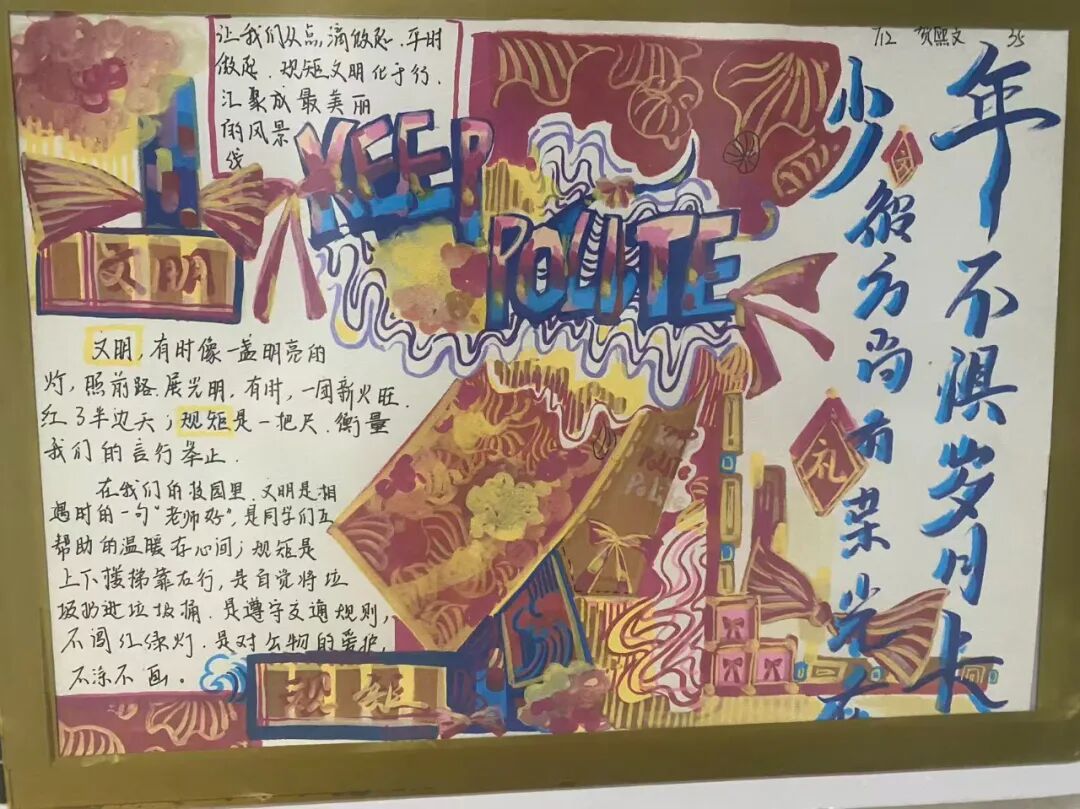 让我们从点滴做起.平时
做起.规矩文明化于行.
汇聚成最美丽
的风景
线
7/2 贺熙文 35
KEEP
POLITE
文明
文明,有时像一盏明亮的
灯,照前路.展光明,有时,一团新火旺.
红了半边天;规矩是一把尺.衡量
我们的言行举止.
在我们的校园里.文明是相
遇时的一句"老师好",是同学们互
帮助的温暖在心间;规矩是
上下楼梯靠右行,是自觉将垃
圾扔进垃圾桶.是遵守交通规则,
不闯红绿灯.是对公物的爱护,
不涂不画。
规矩
Keep
Polite
年不惧岁月长
少
彼方尚有荣光在
国
礼